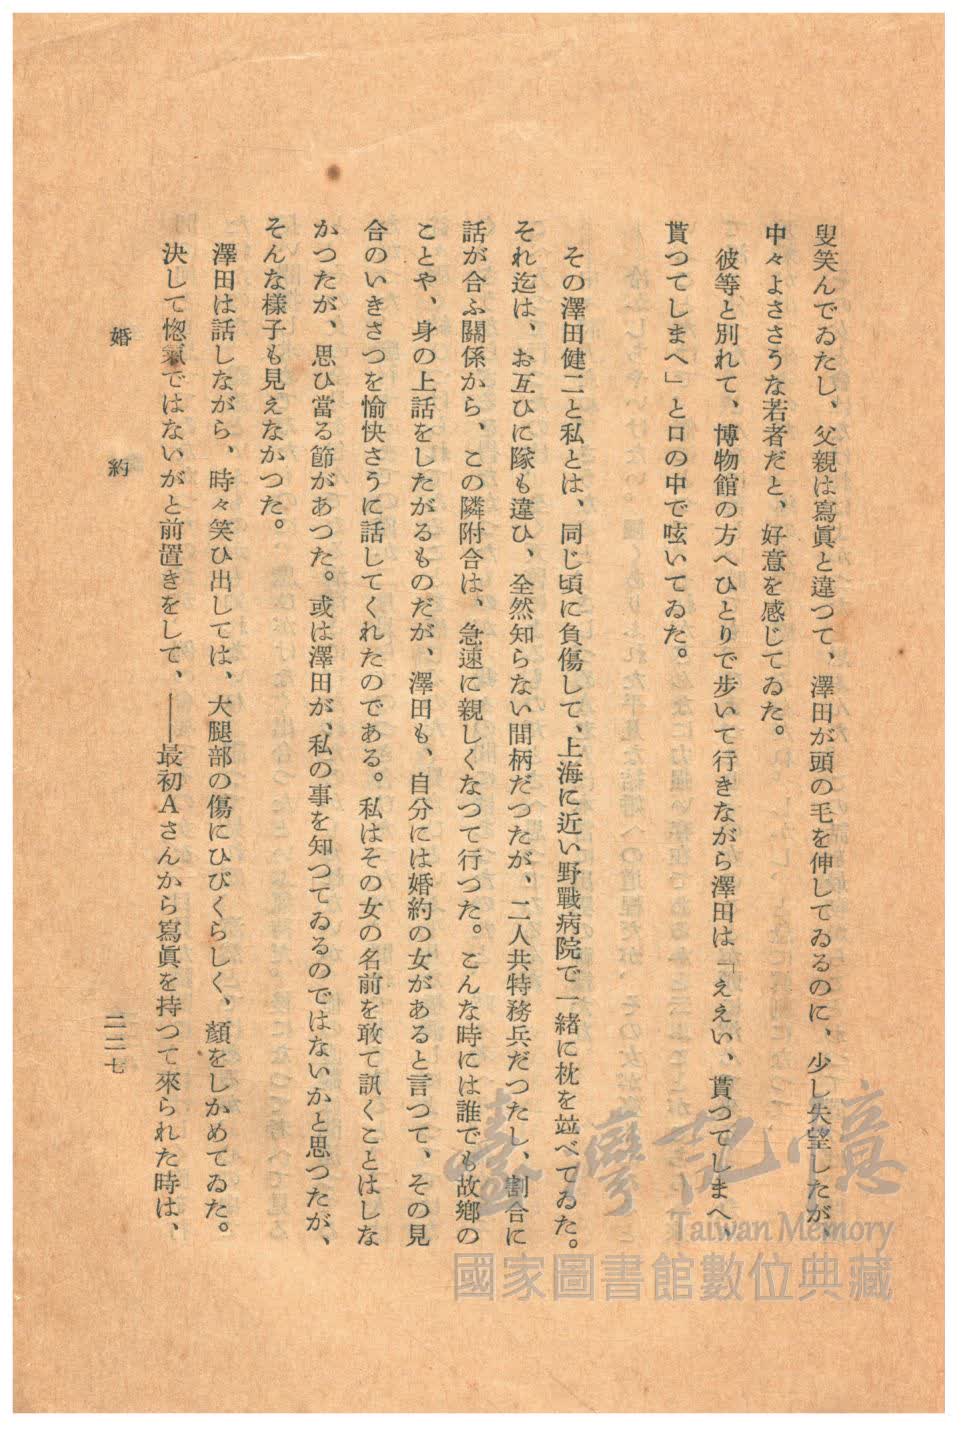 叟笑んでゐたし、父親は寫眞と違つて、澤田が頭の毛を伸してゐるのに、少し失望したが、
中々よささうな若者だと、好意を感じてゐた。
彼等と別れて、博物館の方へひとりで歩いて行きながら澤田は「ええい、貰つてしまへ、
貰つてしまへ」と口の中で呟いてゐた。
その澤田健二と私とは、同じ頃に負傷して、上海に近い野戰病院で一緒に枕を竝べてゐた。
それ迄は、お互ひに隊も違ひ、全然知らない間柄だつたが、二人共特務兵だつたし、割合に
話が合ふ關係から、この隣附合は、急速に親しくなつて行つた。こんな時には誰でも故鄕の
ことや、身の上話をしたがるものだが、澤田も、自分には婚約の女があると言つて、その見
合のいきさつを愉快さうに話してくれたのである。私はその女の名前を敢て訊くことはしな
かつたが、思ひ當る節があつた。或は澤田が、私の事を知つてゐるのではないかと思つたが、
そんな樣子も見えなかつた。
澤田は話しながら、時々笑ひ出しては、大腿部の傷にひびくらしく、顏をしかめてゐた。
決して惚氣ではないがと前置きをして、――最初Aさんから寫眞を持つて來られた時は、
婚約
二二七
臺灣記憶
Taiwan Memory
國家圖書館數位典藏